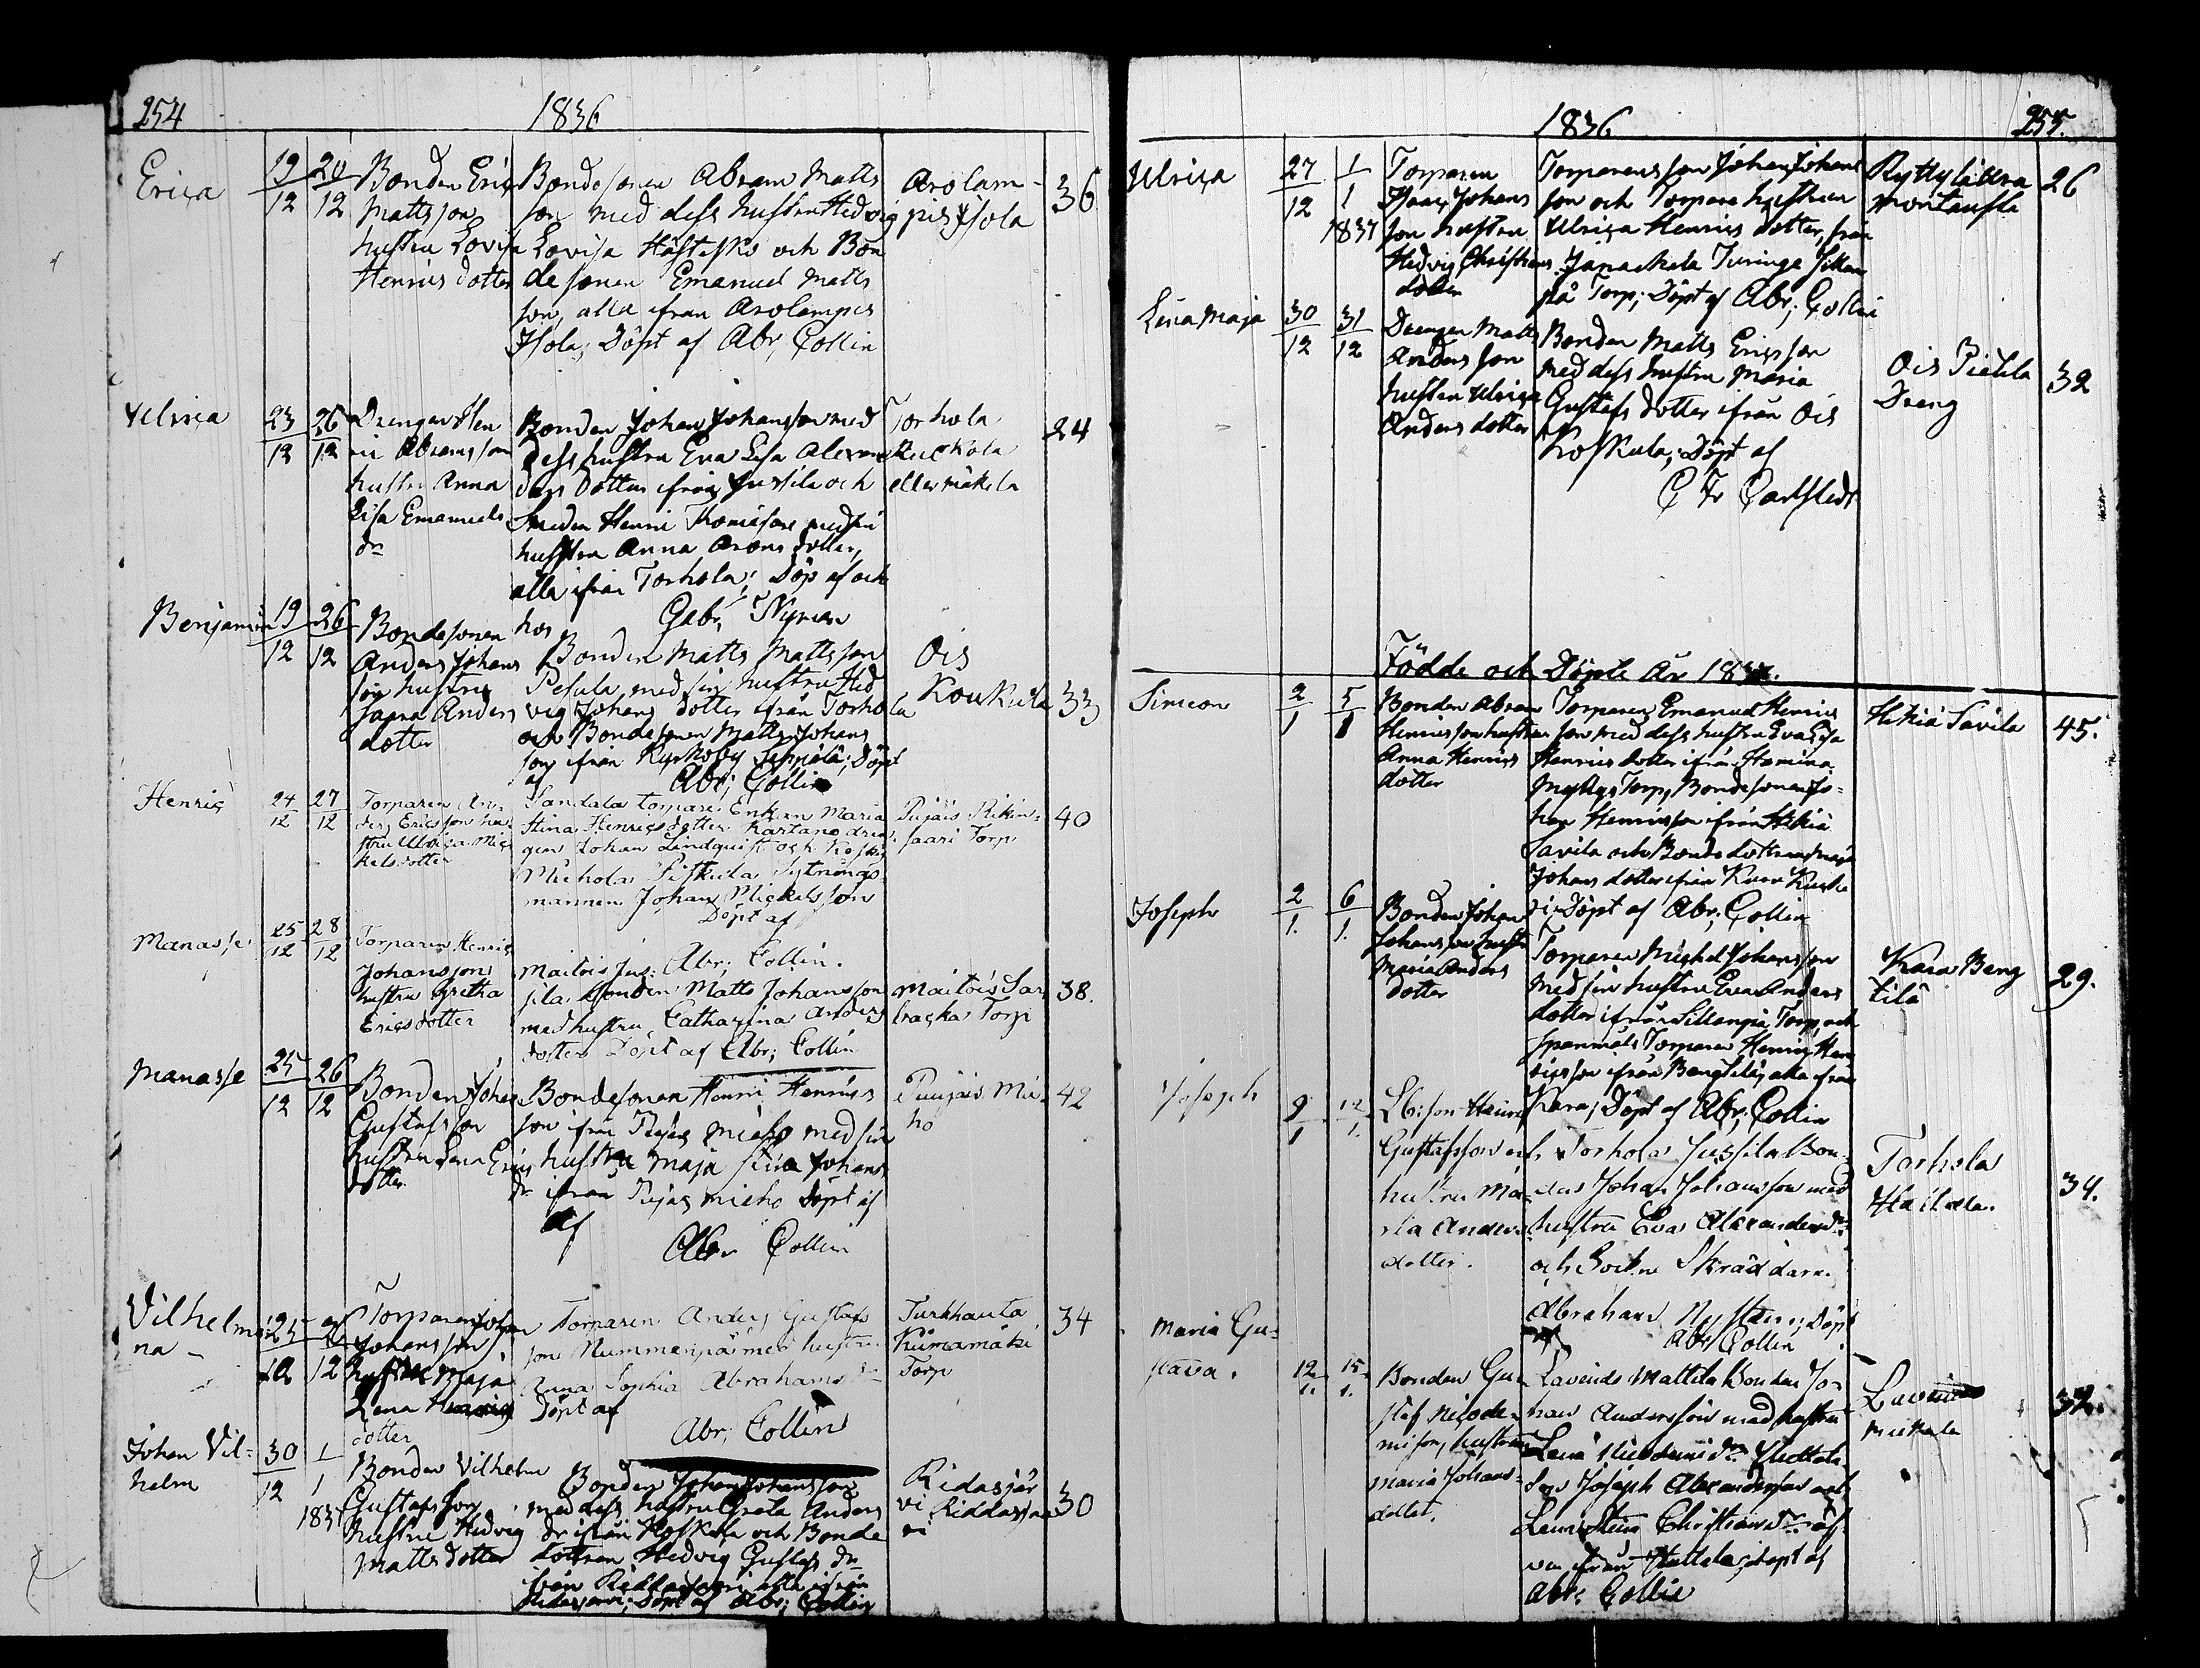 254
1836
Erica
19/12
20/12
Bonden Eric
Mattsson
hustru Lovisa
Henricsdotter
Bondesonen Abram Matts
son med dess hustru Hedvig
Lovisa Häftesko och Bon
desonen Emanuel Matts
son, alla ifrån Arolampis
Isola; Döpt af Abr; Collin
Arolam-
pis Isola
36
Ulrica
23/12
26/12
Drengen Hen
ric Abramsson
hustru Anna
Lisa Emanuels
dr
Bonden Johan Johansson med
dess hustru Eva Lisa Alexan
ders dotter ifrån Jussila och
Smeden Henric Thomasson med sin
hustru Anna Arons dotter,
alla ifrån Torhola; Döp af och
hos Gabr. Nyman
Torhola
eller mäkelä
24
Benjamin
19/12
26/12
Bondesonen
Anders Johans
son hustru
Anders
dotter
Bonden Matts Mattsson
Pesula med sin hustru Hed
vig Johans dotter ifrån Torhola
och Bondesonen Matts Johans
son ifrån Kyrkoby Seppälä; Döpt
af Abr; Collin
Ois
Koukula
33
Henric
24/12
27/12
Torparen An-
ders Ericsson hu-
stru Ulrica Mic
kelsdotter
Sandala torpare Enkan Maria
Stina Henricsdotter Kartano dren
gen Johan Lindquist och Koski
Michola Siskula Sytnings
mannen Johan Mickelsson
Döpt af
Abr; Collin.
Pujais Rikin-
saari Torp
40
Manasse
25/12
28/12
Torparen Henric
Johansson
hustru Gretha
Ericsdotter
Maitois Jus-
sila Bonden Matts Johansson
med hustru Catharina Anders
dotter Döpt af Abr; Collin
Maitois Sar
backa Torp
38.
Manasse
25/12
26/12
Bonden Johan
Gustafsson
hustru Lena Erics
dotter
Bondesonen Henric Henrics
son ifrån Pujas Mieho med sin
hustru Maja Stina Johans
dr ifrån Pujas mieho Döpt af
af
Abr Collin
Puujais Mie
ho
42
Vilhelmi
na -
25/12
26/12
Torparen Johan
Johansson
hustru Maja
Lena Henrics
dotter
Torparen Anders Gustafs
son Nummenpää med hustru
Anna Sophia Abrahams dr
Döpt af
Abr; Collin
Turkhauta
Kiimamäki
Torp
34
Johan Vil-
helm
30/12
1/1
1837
Bonden Vilhelm
Gustafsson
hustru Hedvig
Mattsdotter
Bonden Johan Johansson
med dess hustru Greta Anders
dr ifrån Koskela och Bonde
dottren Hedvig Gustafs dr
ifrån Riddasjärvi alla ifrån
Ridasjärvi; Döpt af Abr; Collin
Ridasjär
vi Riddasjär
vi
30
1836
255.
Ulrica
27/12
1/1
1837
Torparen
Isaac Johans
son hustru
Hedvig Christians
dotter
Torparens son Johan Johans
son och Torpare hustrun
Ulrica Henrics dotter, från
på Torp; Döpt af Abr; Collin
Ryttylä
26
Lena Maja
30/12
31/12
Drengen Matts
Andersson
hustru Ulrica
Anders dotter
Bonden Matts Ericsson
med dess hustru Maria
Gustafs dotter ifrån Ois
Koskula; Döpt af
C Fr Carlstedt
Ois Pietila
Dreng
32
Födde och Döpte År 1837.
Simeon
2/1
5/1
Bonden Abram
Henricsson hustru
Anna Henrics
dotter
Torparen Emanuel Henrics
son med dess hustru Eva Lisa
Henrics dotter ifrån
Torp, Bondesonen Jo-
han Henricsson ifrån Hikiä
Savila och Bonde dottren Maja
Johans dotter ifrån
Döpt af Abr; Collin
Hikiä Savila
45.
Joseph
2/1.
6/1.
Bonden Johan
Johansson hustru
Maria Anders
dotter
Torparen Michel Johansson
med sin hustru Eva Anders
dotter ifrån Sillanpä Torp, och
Spanmåls Torparen Henric Hen
ricsson ifrån Bengtilä; alla ifrån
Kara; Döpt af Abr; Collin
Kara Beng
tilä
29.
Joseph
9/1
12/1.
Henric
Gustafsson och
hustru Ma-
ria Anders
dotter.
Torhola Jussila Bon
den Johan Johansson med
hustru Eva Alexanders dr
och Sockne Skräddare
Abraham; Döpt
af Abr Collin
Torhola
Heikkilä.
34.
Maria Gu-
stava.
12/1.
15/1.
Bonden Gu-
staf Nicode-
misson, hustru
Maria Johans-
dotter.
Lavinds Mattila Bonden Jo-
han Andersson med hustru
Lena Nicodemi dr
son Joseph Alexandersson och
Stina Christians dr äf
ven ifrån; döpt af
Abr: Collin
32.